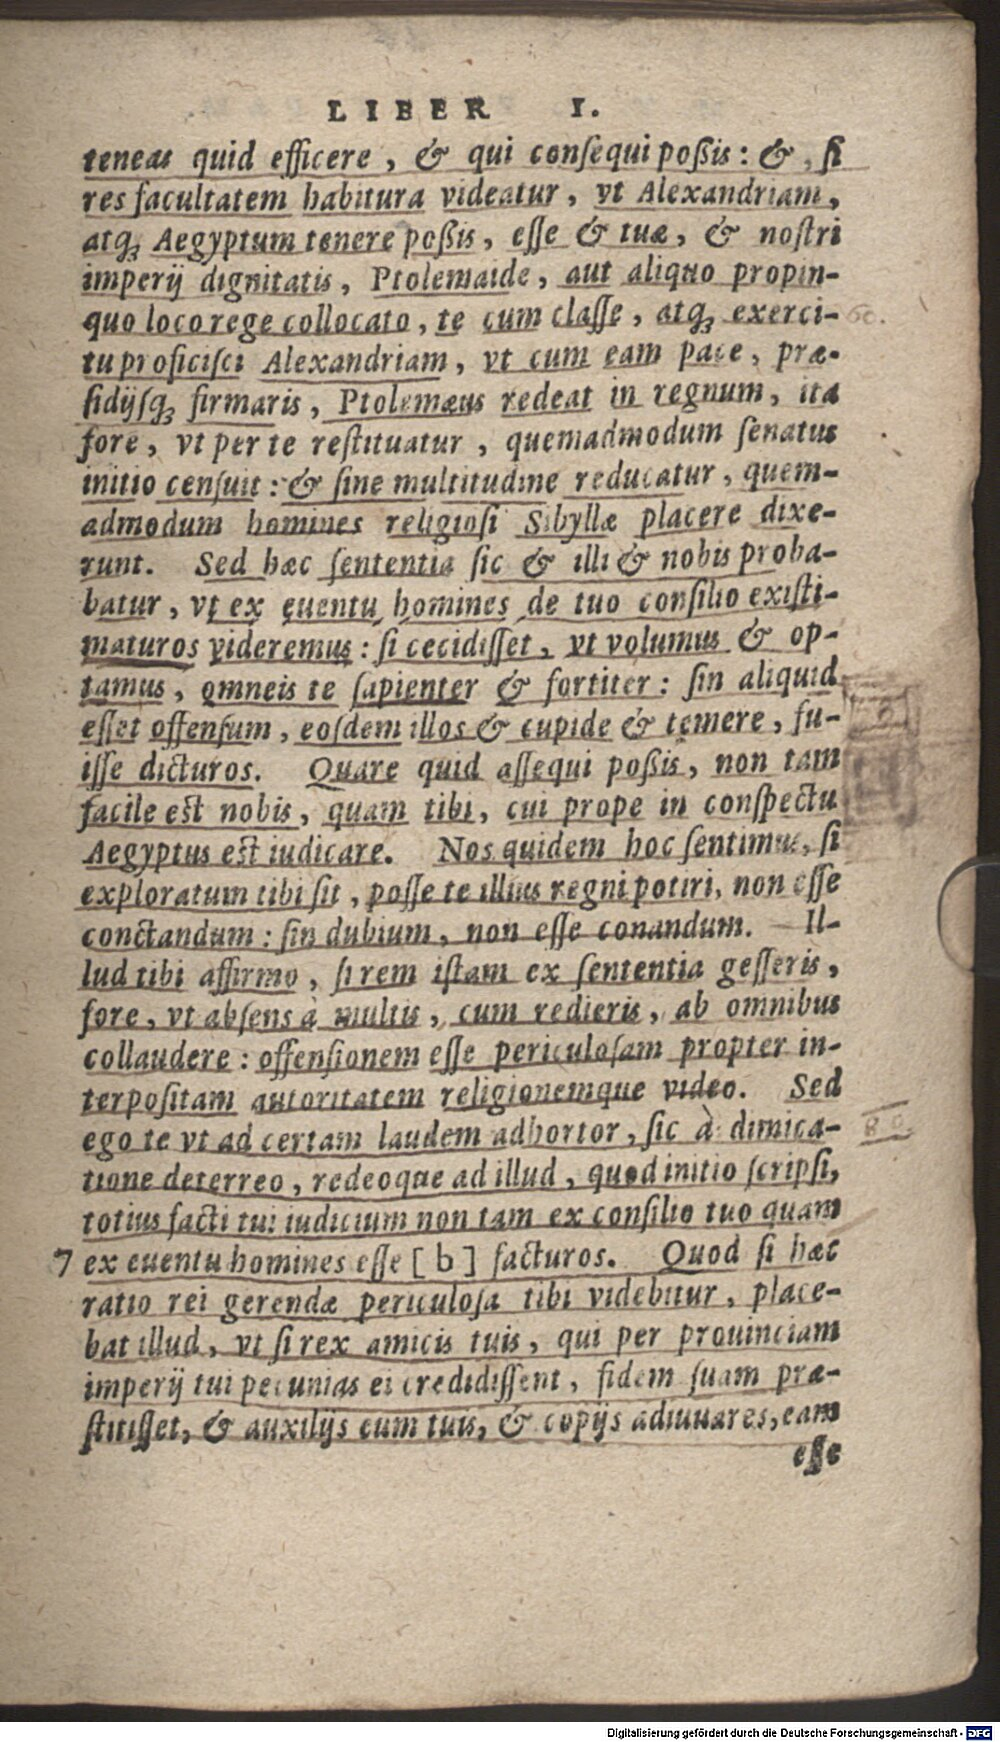 LIBER I.
teneas quid efficere, & qui consequi poßis: &, si
res facultatem habitura videatur, vt Alexandriam,
atq; Aegyptum tenere poßis, esse & tuæ, & nostri
imperij dignitatis, Ptolemaide, aut aliquo propin-
quo loco rege collocato, te cum classe, atq; exerci-
tu proficisci Alexandriam, vt cum eam pace, præ-
sidijsq; firmaris, Ptolemæus redeat in regnum, ita
fore, vt per te restituatur, quemadmodum senatus
initio censuit: & sine multitudine reducatur, quem-
admodum homines religiosi Sibyllæ placere dixe-
runt. Sed hæc sententia sic & illi & nobis proba-
batur, vt ex euentu homines de tuo consilio existi-
maturos videremus: si cecidisset, vt volumus & op-
tamus, omneis te sapienter & fortiter: sin aliquid
esset offensum, eosdem illos & cupide & temere, fu-
isse dicturos. Quare quid assequi poßis, non tam
facile est nobis, quam tibi, cui prope in conspectu
Aegyptus est iudicare. Nos quidem hoc sentimus, si
exploratum tibi sit, posse te illius regni potiri, non esse
conctandum: sin dubium, non esse conandum. Il-
lud tibi affirmo, si rem istam ex sententia gesseris,
fore, vt absens à multis, cum redieris, ab omnibus
collaudere: offensionem esse periculosam propter in-
terpositam autoritatem religionemque video. Sed
ego te vt ad certam laudem adhortor, sic à dimica-
tione deterreo, redeoque ad illud, quod initio scripsi,
totius facti tui iudicium non tam ex consilio tuo quam
7 ex euentu homines esse [b] facturos. Quod si hæc
ratio rei gerendæ periculosa tibi videbitur, place-
bat illud, vt si rex amicis tuis, qui per prouinciam
imperij tui pecunias ei credidissent, fidem suam præ-
stitisset, & auxilijs eum tuis, & copijs adiuuares, eam
esse
Digitalisierung gefördert durch die Deutsche Forschungsgemeinschaft - DFG